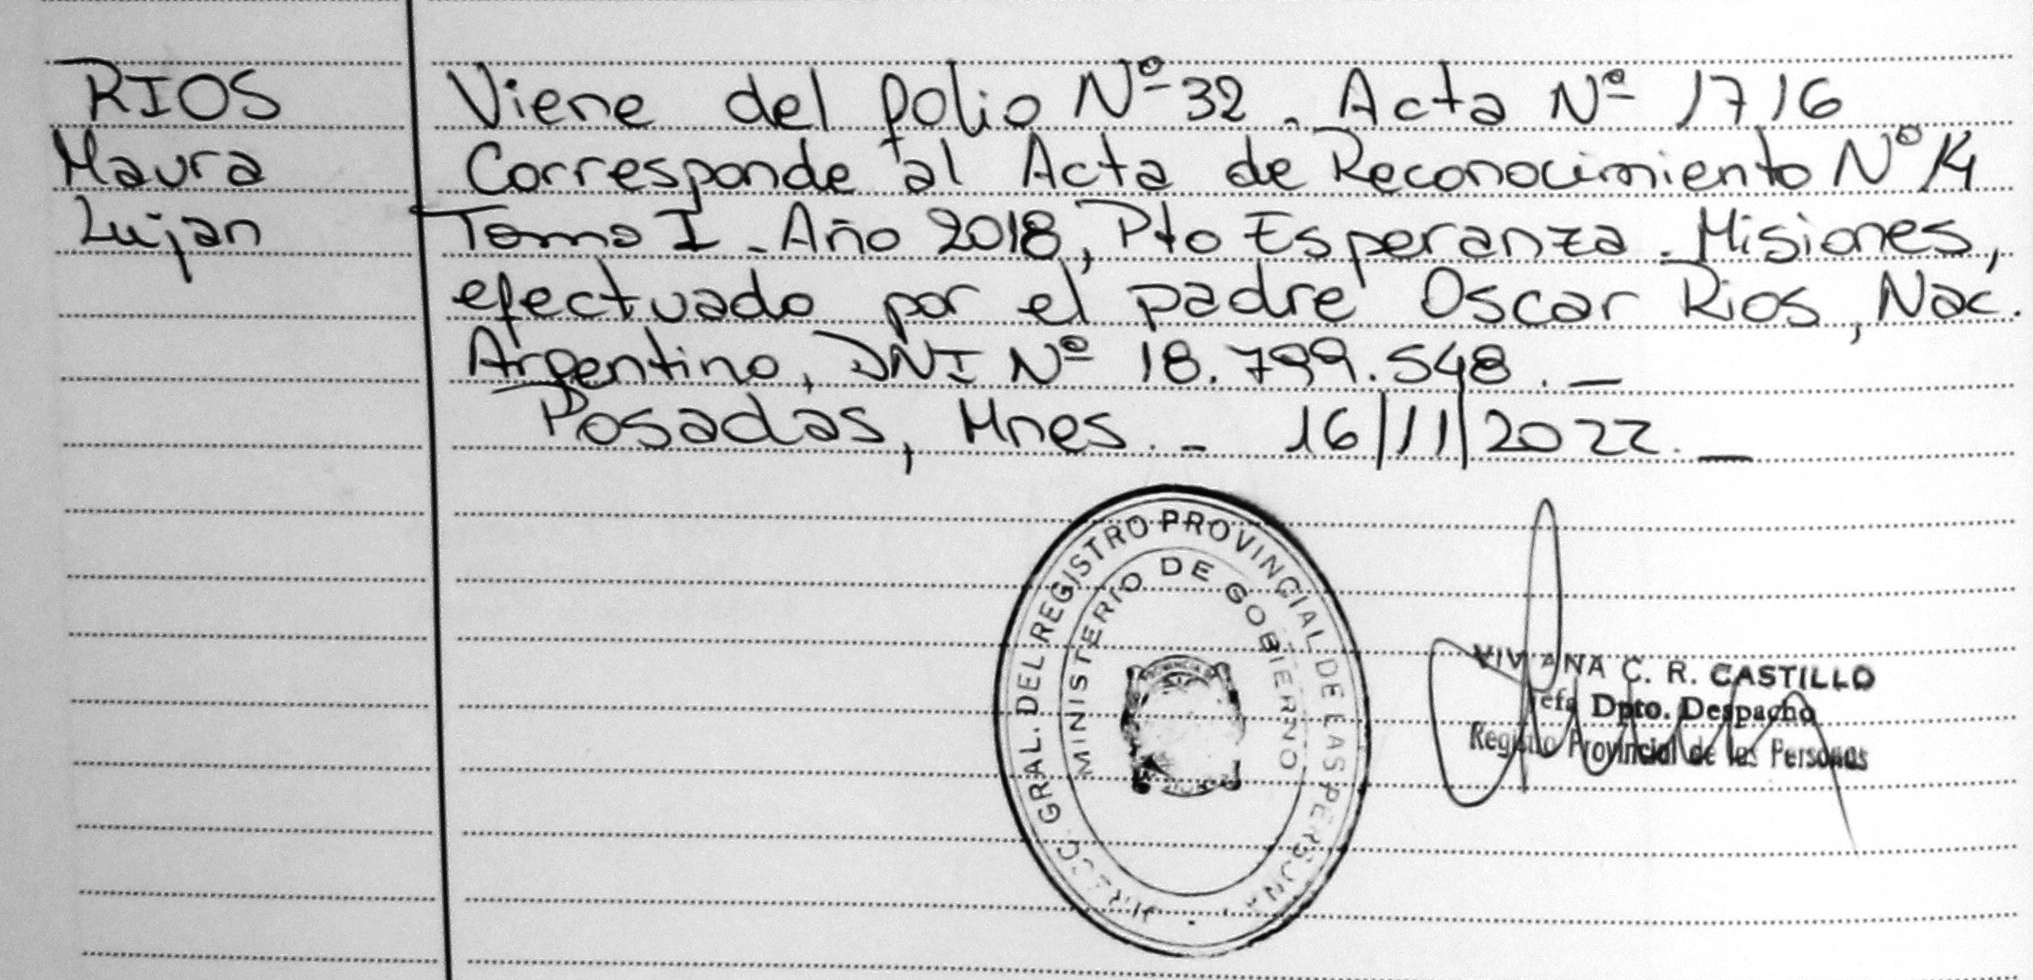 RIOS
Maura
Lujan
Viene del folio Nº 32. Acta Nº 1716
Corresponde al Acta de Reconocimiento Nº 14
Tomo I - Año 2018, Pto Esperanza - Misiones,
efectuado por el padre Oscar Rios, Nac.
Argentino, DNI Nº 18.799.548. _
Posadas, Mnes. - 16/11/2022. _
GRAL. DEL REGISTRO PROVINCIAL DE LAS PERSONAS
MINISTERIO DE GOBIERNO
VIVIANA C. R. CASTILLO
Jefa Dpto. Despacho
Registro Provincial de las Personas